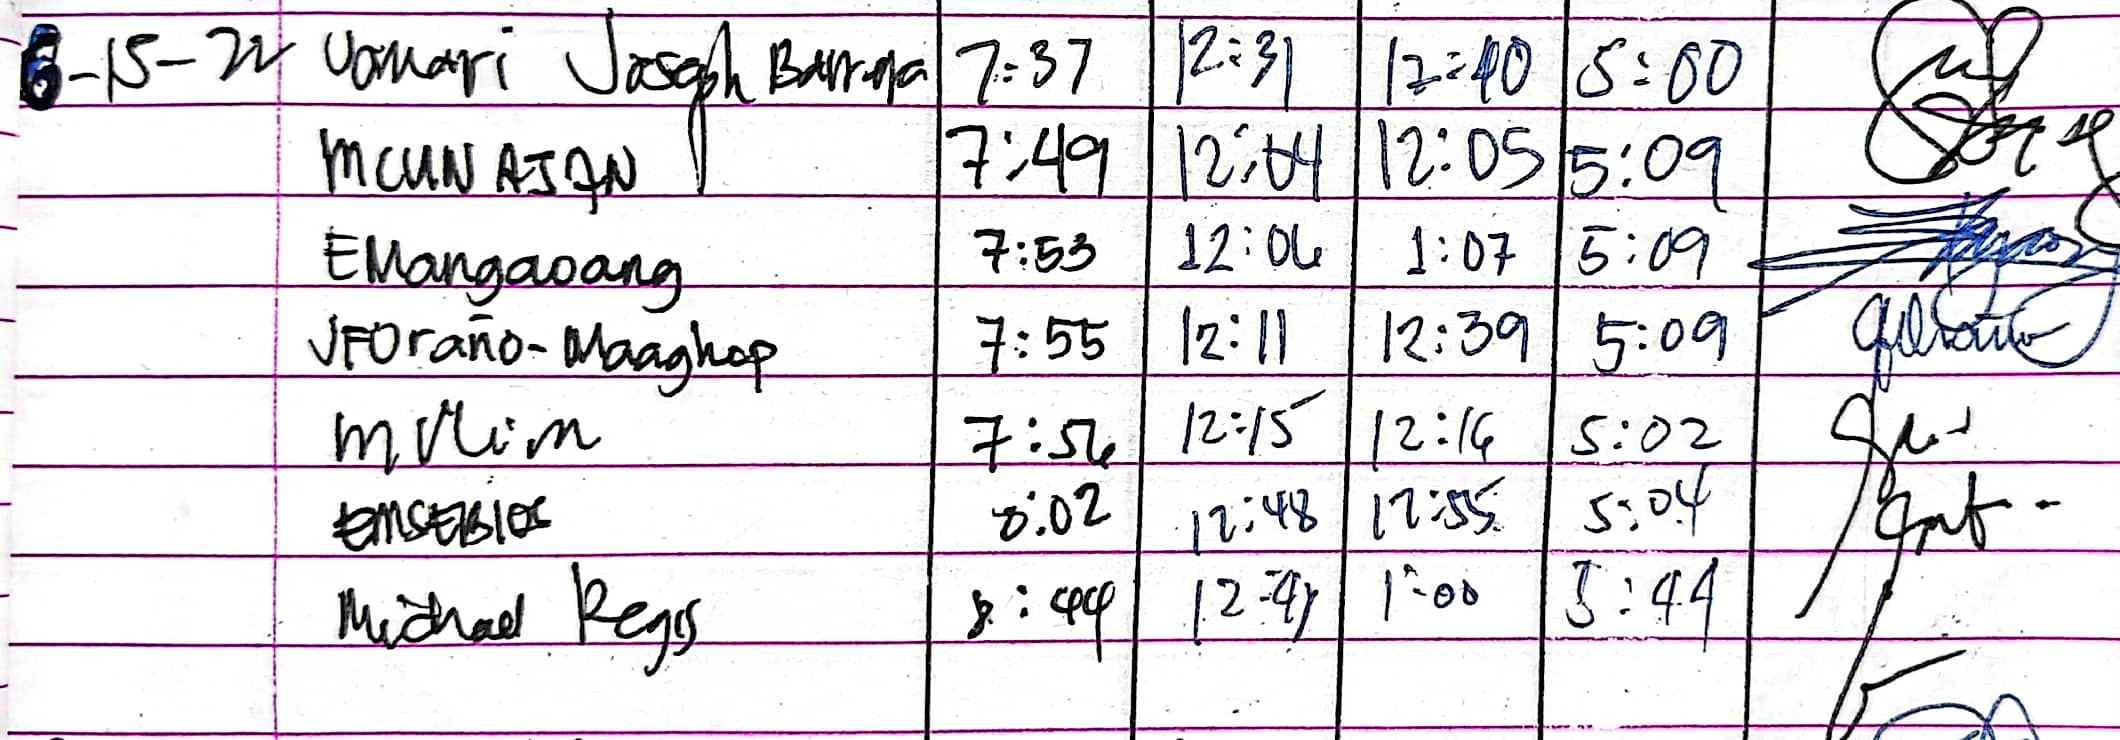 6-15-22 Jomari Joseph 7:37 12:31 12:40 5:00
7:49 12:04 12:05 5:09
EMangaoang 7:53 12:06 1:07 5:09
JFOraño-Maaghop 7:55 12:11 12:39 5:09
7:56 12:15 12:16 5:02
8:02 12:48 12:55 5:04
Michael Regis 8:44 1:00 5:44